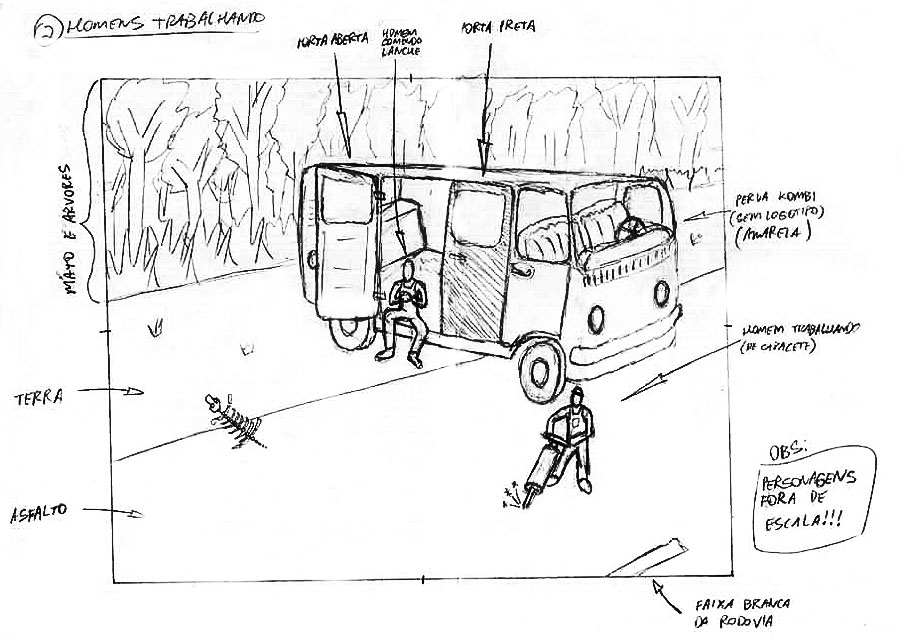 2 HOMENS TRABALHANDO
PORTA ABERTA
HOMEM
COMENDO
LANCHE
PORTA PRETA
MATO E ARVORES
PERUA KOMBI
(SEM LOGOTIPO)
(AMARELA)
HOMEM TRABALHANDO
(DE CAPACETE)
TERRA
OBS:
PERSONAGENS
FORA DE
ESCALA!!!
ASFALTO
FAIXA BRANCA
DA RODOVIA